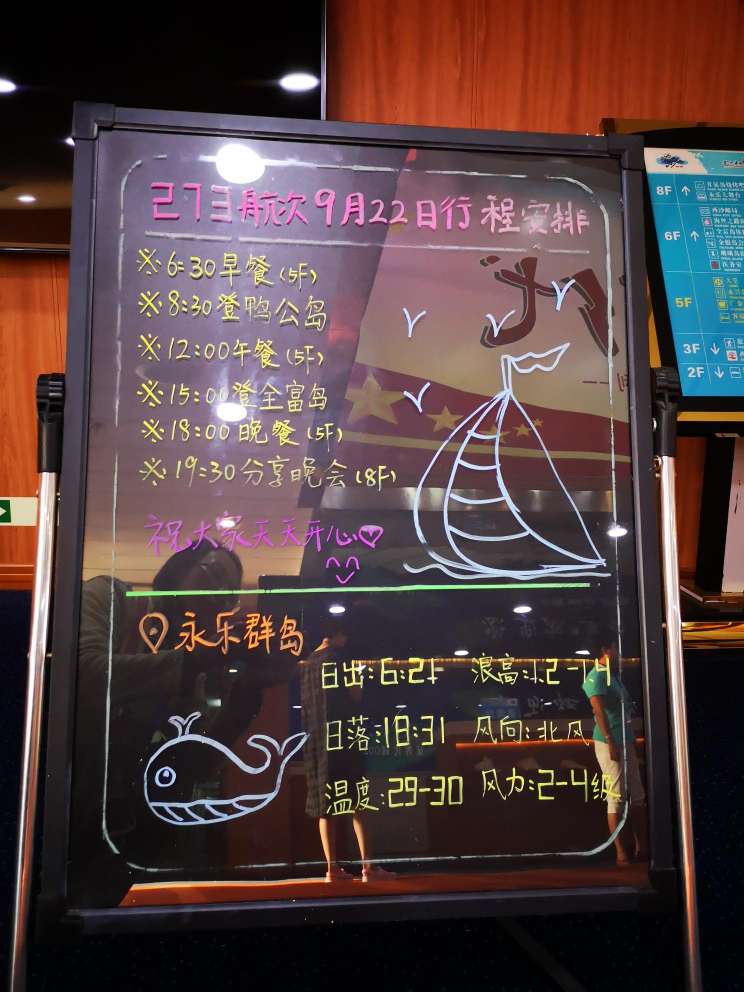 273航次9月22日行程安排
※6:30早餐(5F)
※8:30登鸭公岛
※12:00午餐(5F)
※15:00登全富岛
※18:00晚餐(5F)
※19:30分享晚会(8F)
祝大家天天开心
永乐群岛
日出:6:21 浪高:1.2-1.4
日落:18:31 风向:北风
温度:29-30 风力:2-4级
8F ↑
6F ↑
5F
3F ↓
2F ↓